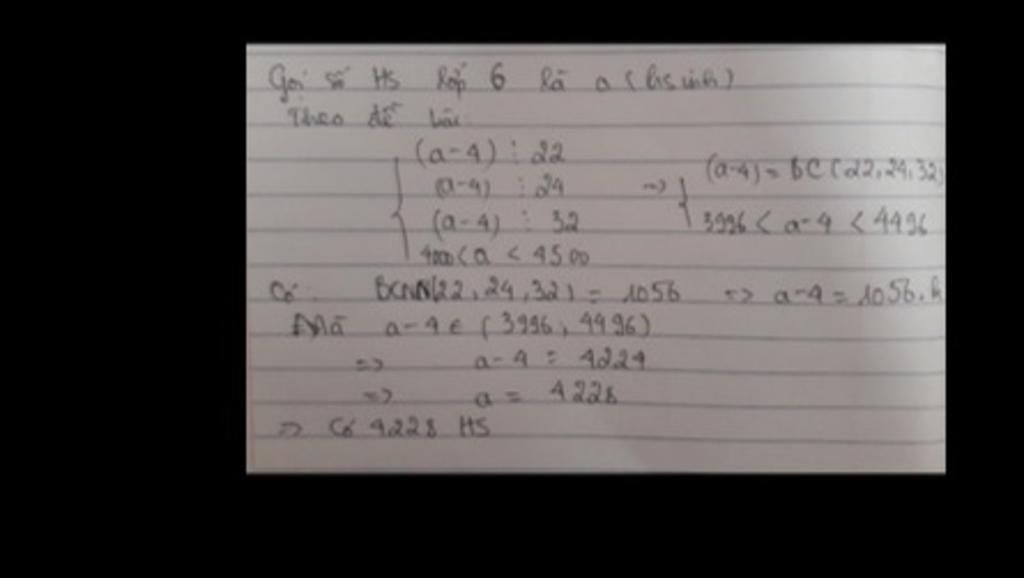 Gọi số HS lớp 6 là a (hsinh)
Theo đề bài
(a-4) ⋮ 22
(a-4) ⋮ 24
(a-4) ⋮ 32
4000 < a < 4500
=> (a-4) = BC(22,24,32)
3996 < a-4 < 4496
Có: BCNN(22, 24, 32) = 1056 => a-4 = 1056.k
Mà a-4 ∈ (3996, 4496)
=> a-4 = 4224
=> a = 4228
=> Có 4228 HS